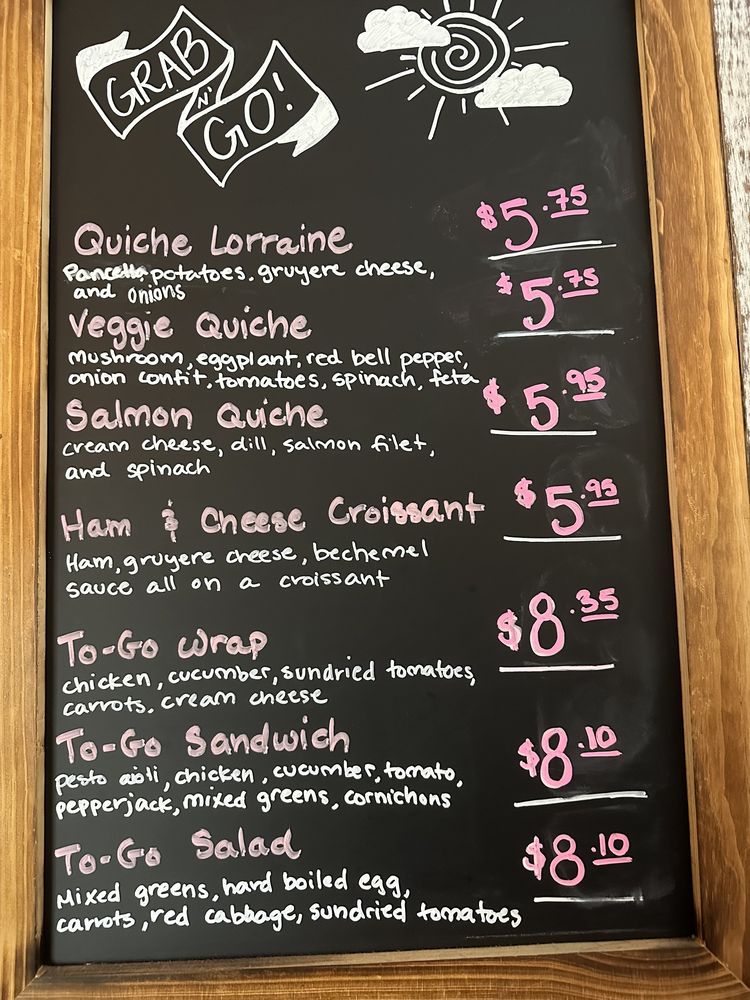 GRAB
N'
GO!
Quiche Lorraine $5.75
Pancetta potatoes, gruyere cheese,
and onions
Veggie Quiche $5.75
mushroom, eggplant, red bell pepper,
onion confit, tomatoes, spinach, feta
Salmon Quiche $5.95
cream cheese, dill, salmon filet,
and spinach
Ham & Cheese Croissant $5.95
Ham, gruyere cheese, bechemel
sauce all on a croissant
To-Go Wrap $8.35
chicken, cucumber, sundried tomatoes,
carrots, cream cheese
To-Go Sandwich $8.10
pesto aioli, chicken, cucumber, tomato,
pepperjack, mixed greens, cornichons
To-Go Salad $8.10
Mixed greens, hard boiled egg,
carrots, red cabbage, sundried tomatoes